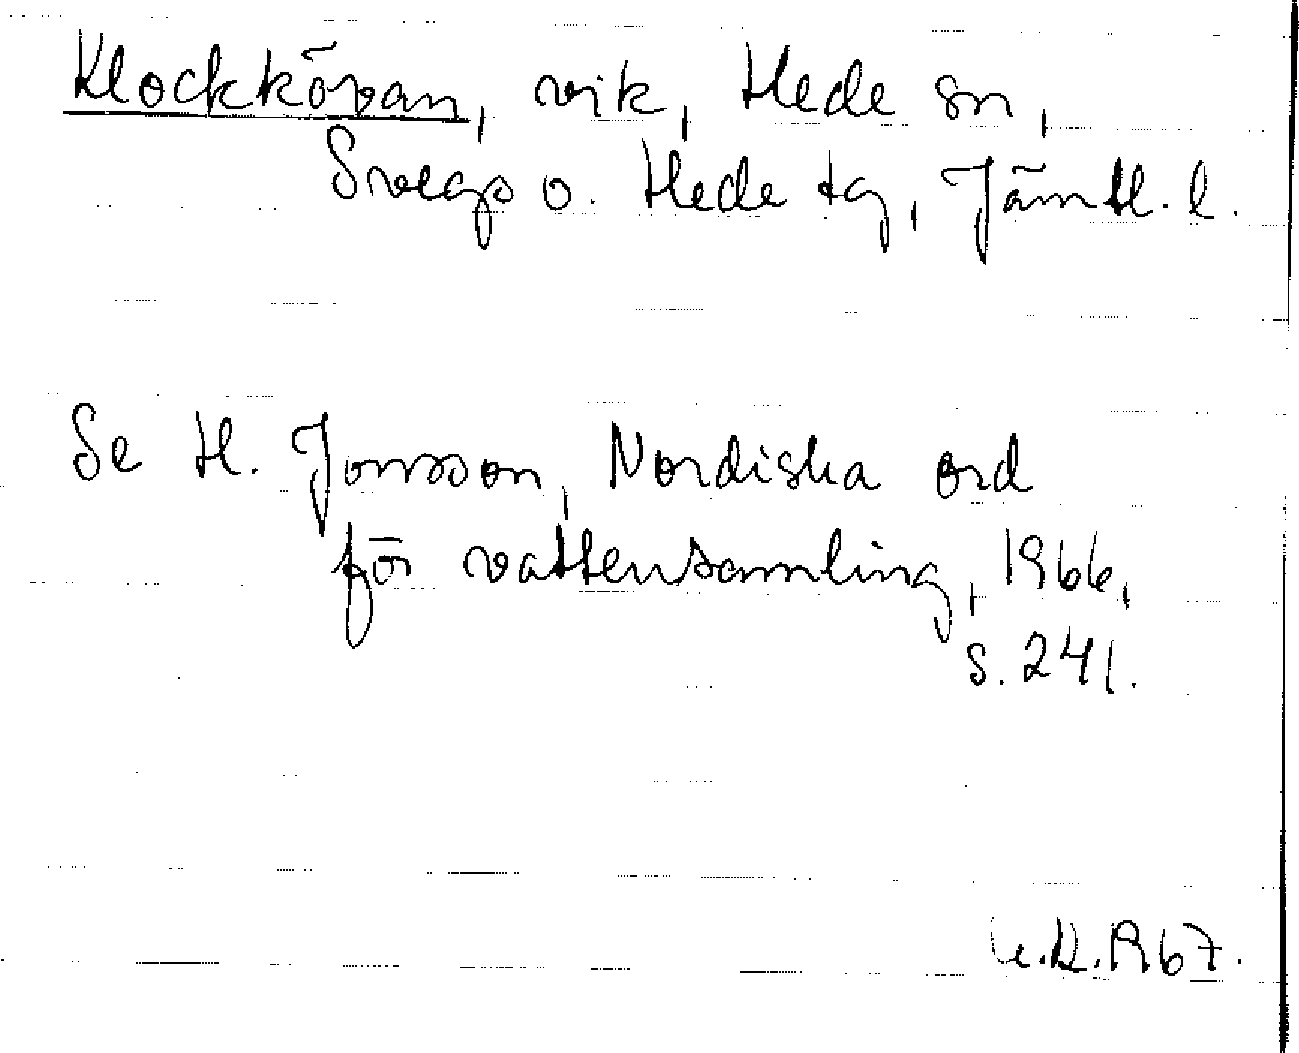 Klockkövan, vik, Hede sn,
Svegs o. Hede tg, Jämtl. l.
Se H. Jonsson, Nordiska ord
för vattensamling, 1966,
s. 241.